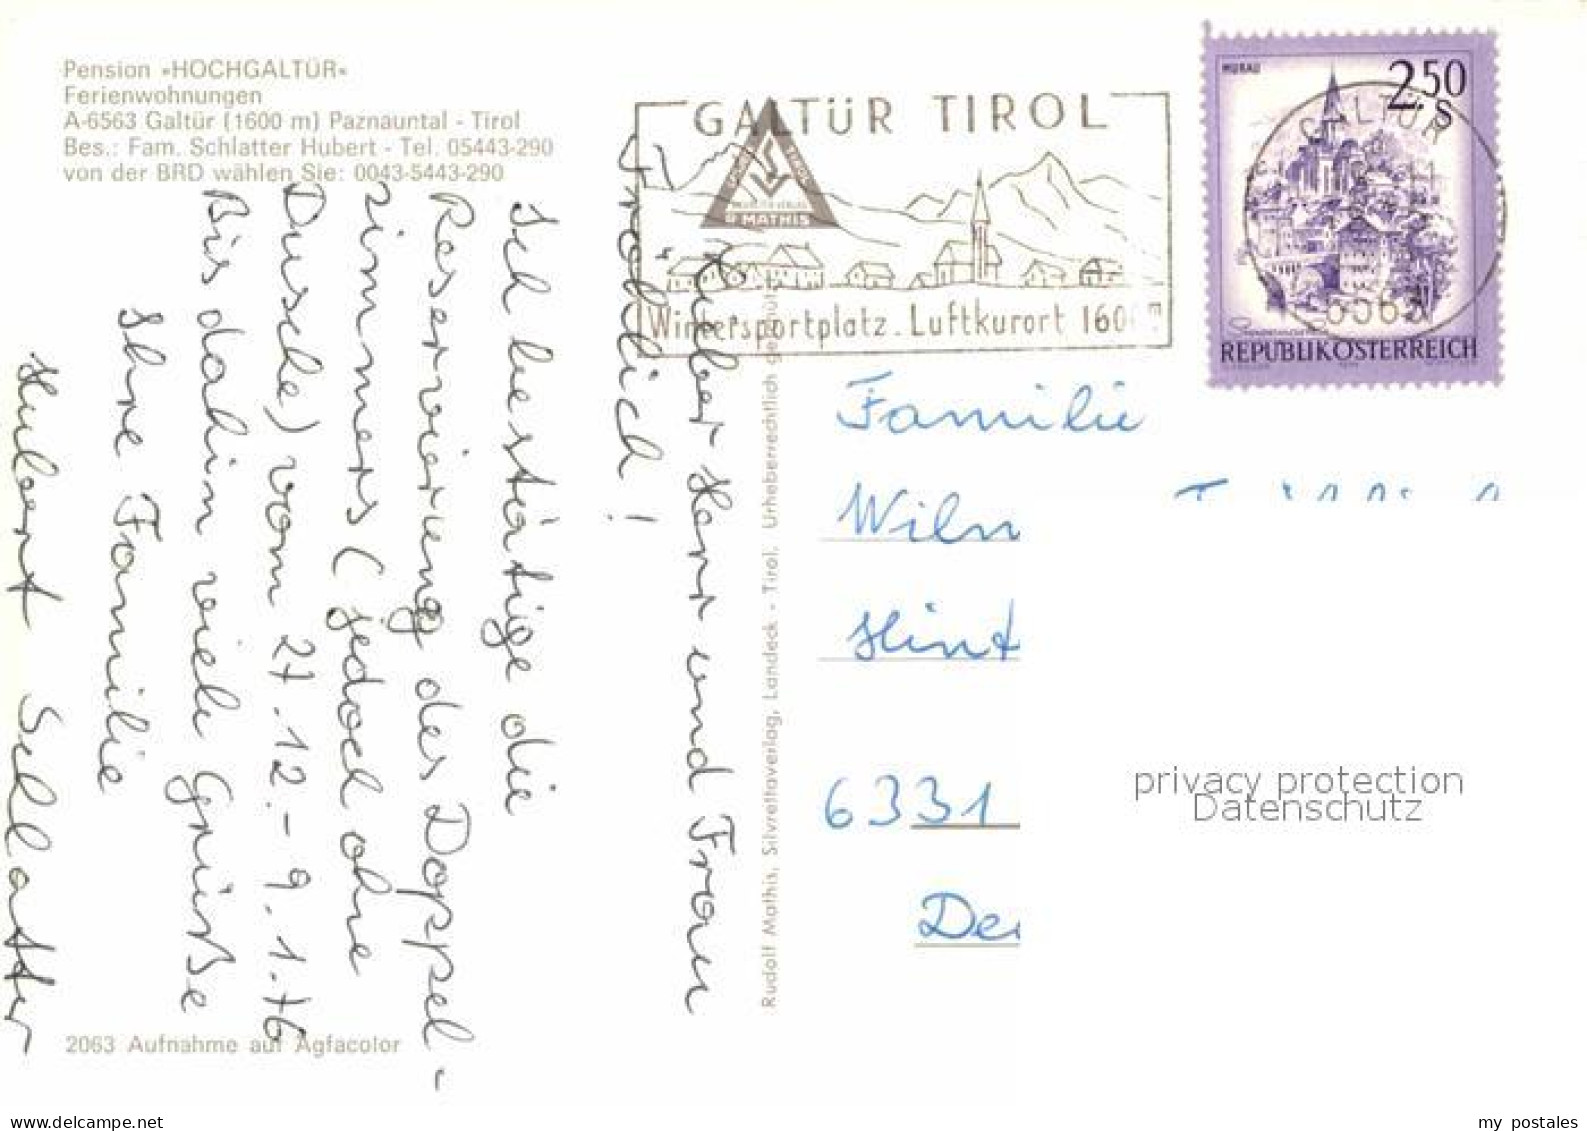 Pension »HOCHGALTÜR«
Ferienwohnungen
A-6563 Galtür (1600 m) Paznauntal - Tirol
Bes.: Fam. Schlatter Hubert - Tel. 05443-290
von der BRD wählen Sie: 0043-5443-290
GALTÜR TIROL
R. MATHIS
Wintersportplatz. Luftkurort 160
MURAU
2.50
S
GALTÜR
6563
REPUBLIK ÖSTERREICH
Lieber Herr und Frau
Fröhlich!
Ich bestätige die
Reservierung des Doppel-
zimmers (jedoch ohne
Dusche) vom 27.12.- 9.1.76
Bis dahin viele Grüße
Ihre Familie
Hubert Schlatter
Rudolf Mathis, Silvrettaverlag, Landeck - Tirol. Urheberrechtlich geschützt
Familie
Wilm
Hint
6331
De
privacy protection
Datenschutz
2063 Aufnahme auf Agfacolor
www.delcampe.net
my_postales